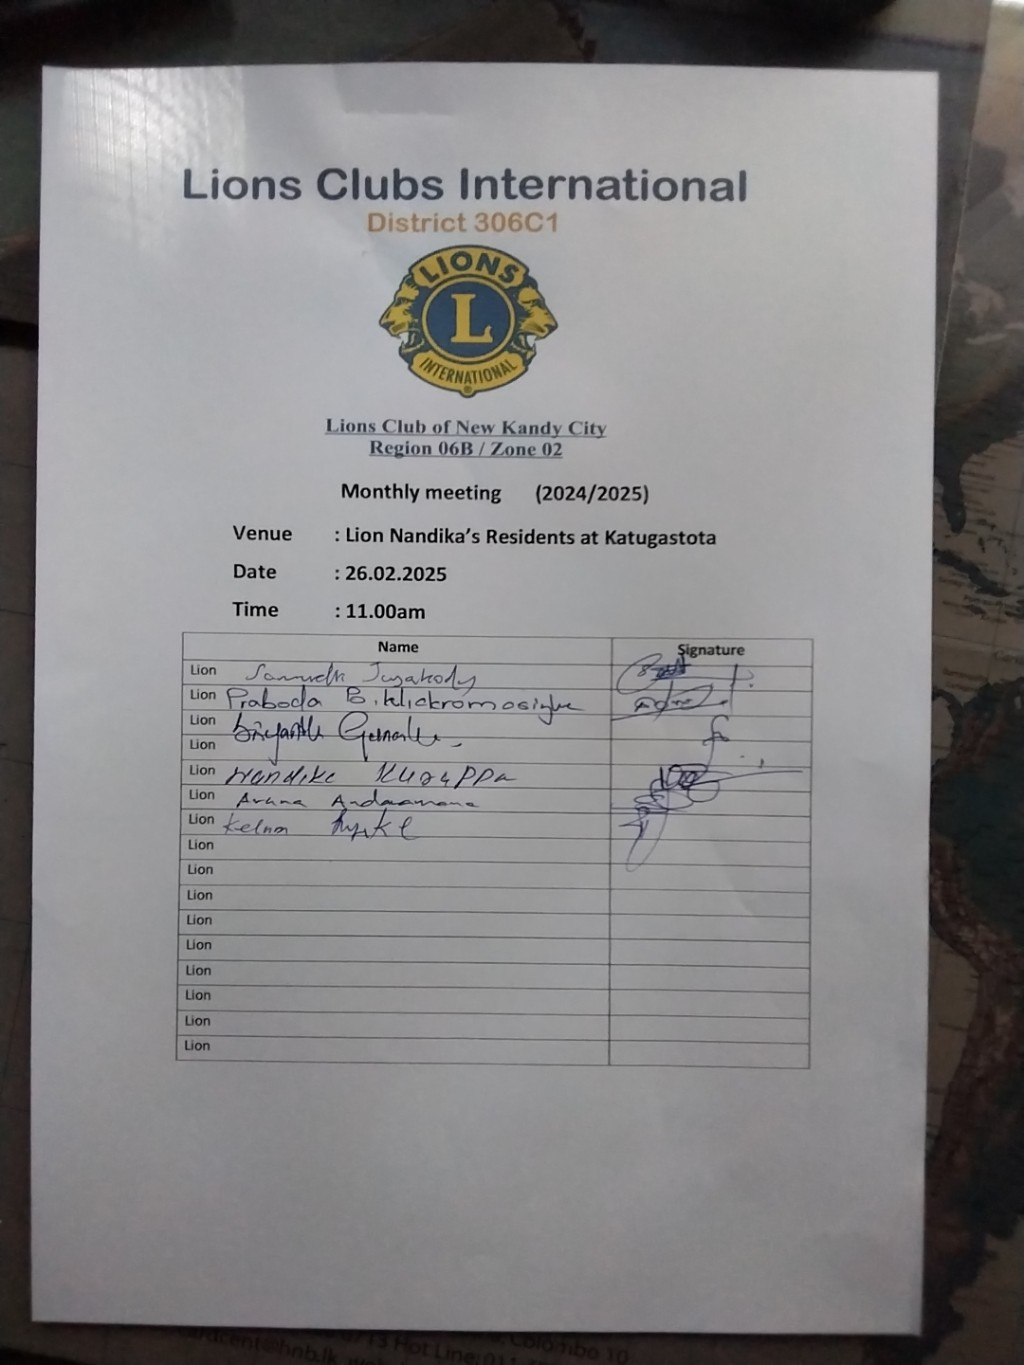 Lions Clubs International
District 306C1
LIONS
L
INTERNATIONAL
Lions Club of New Kandy City
Region 06B / Zone 02
Monthly meeting (2024/2025)
Venue : Lion Nandika's Residents at Katugastota
Date : 26.02.2025
Time : 11.00am
Name Signature
Lion
Lion Praboda B. Wickramasinghe
Lion
Lion
Lion Nandike Kuruppu
Lion Aruna
Lion Kelum
Lion
Lion
Lion
Lion
Lion
Lion
Lion
Lion
Lion
Hot Line: 011
Colombo 10